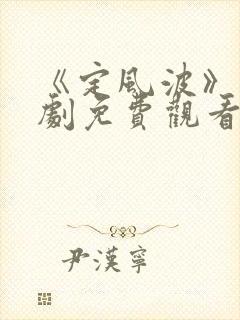 《定風波》
劇免費觀看
尹漢寧